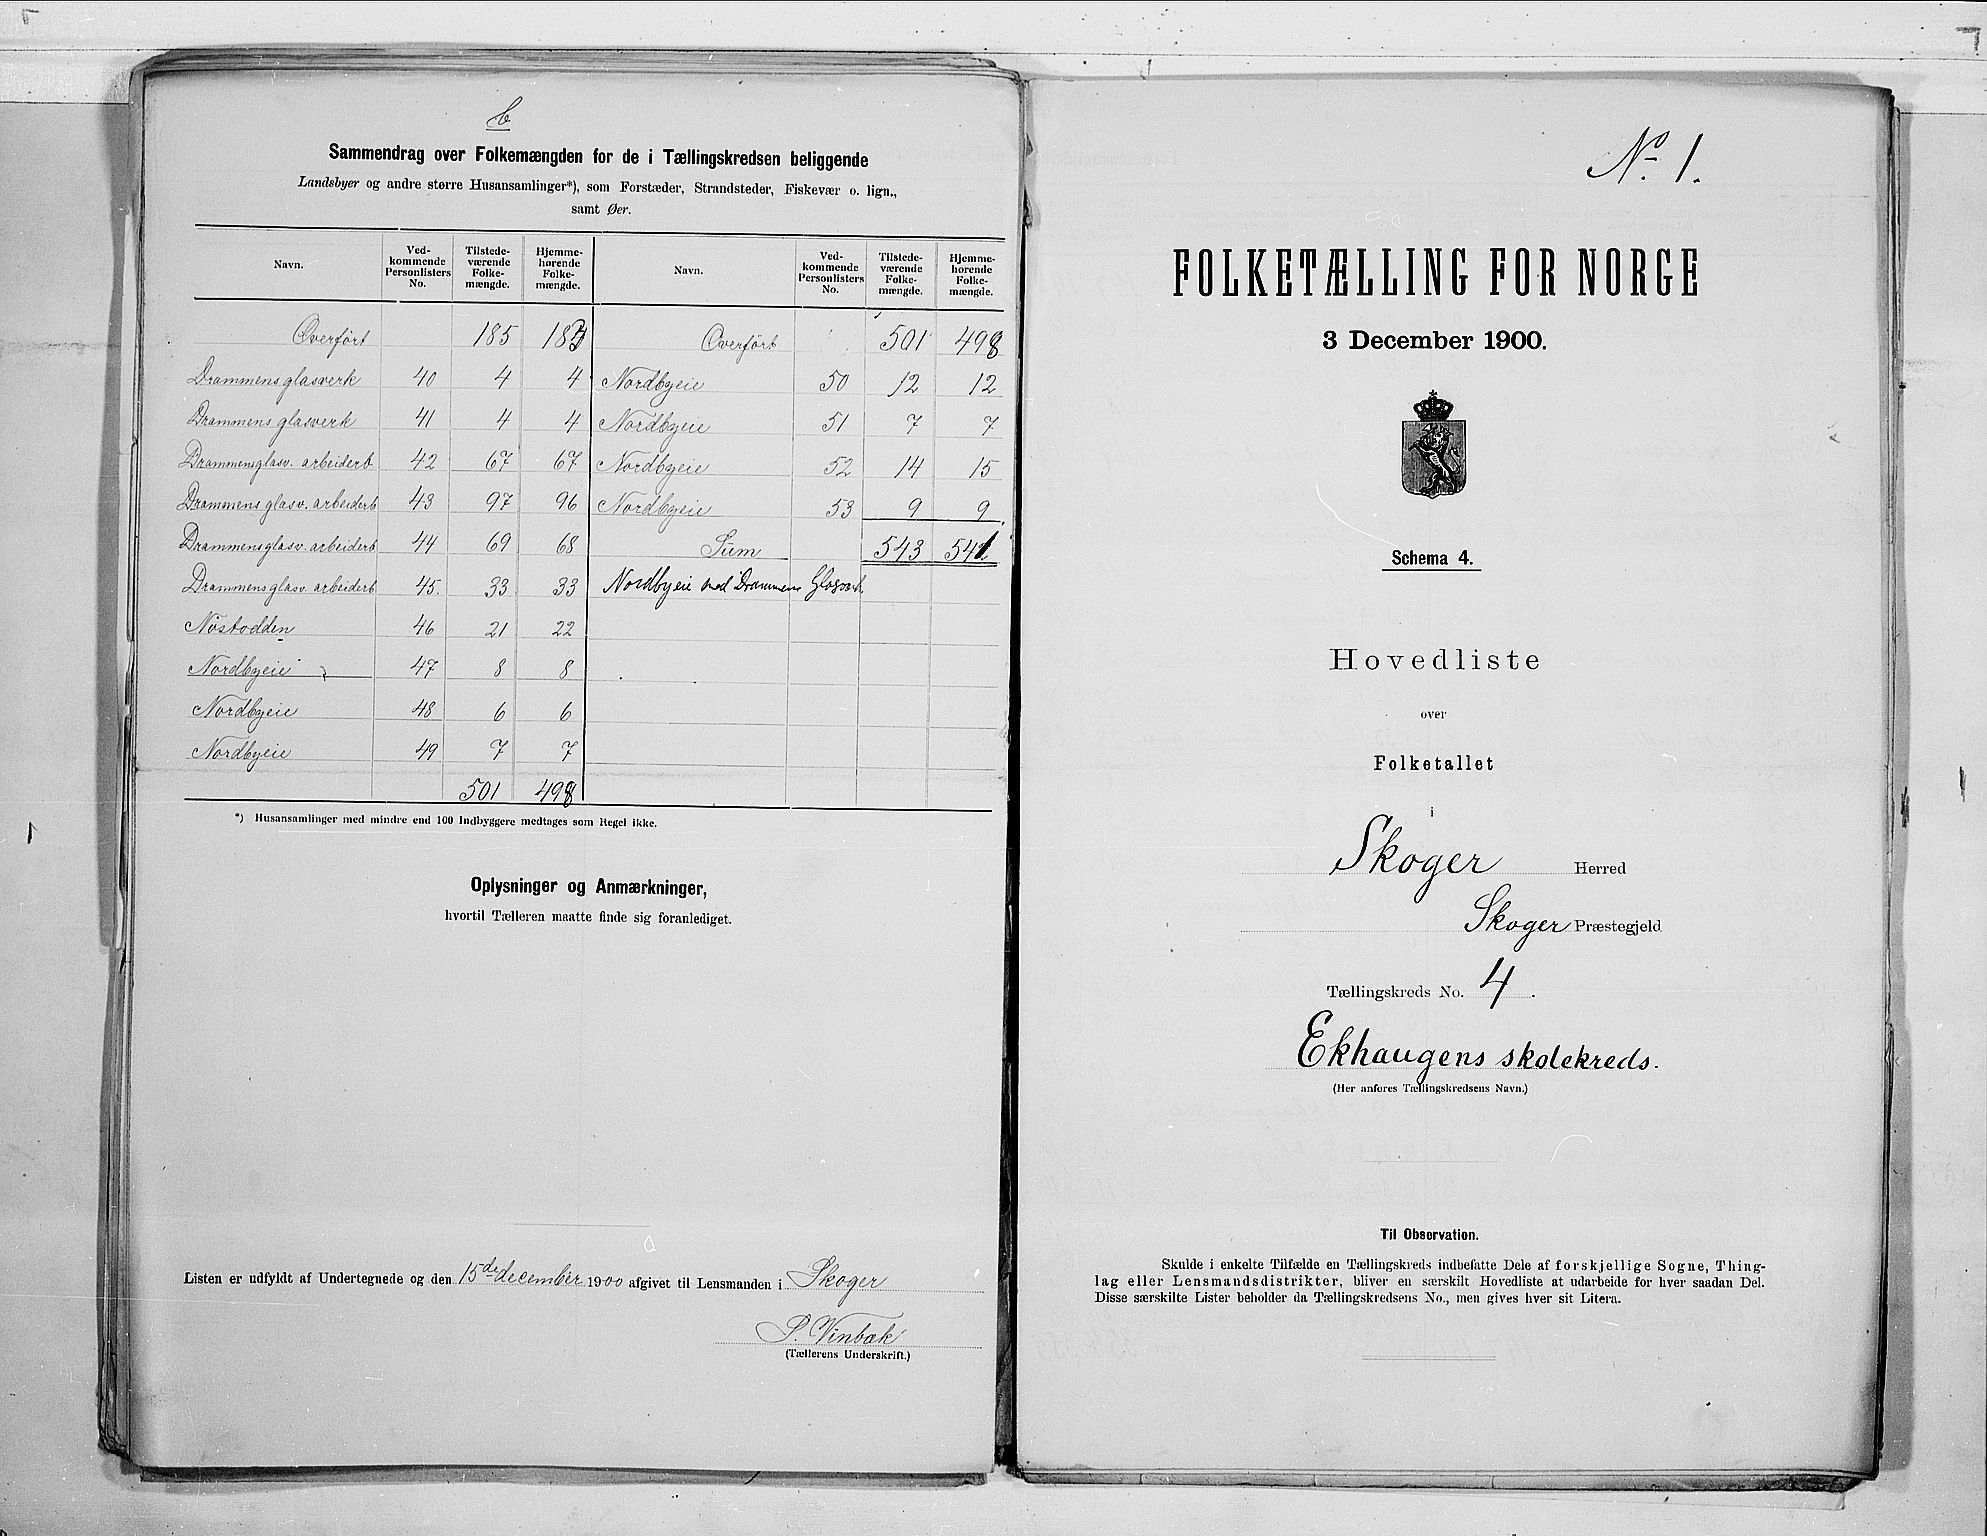 b
Sammendrag over Folkemængden for de i Tællingskredsen beliggende
Landsbyer og andre større Husansamlinger*), som Forstæder, Strandsteder, Fiskevær o. lign.,
samt Øer.
Navn. Ved-kommende Personlisters No. Tilstede-værende Folke-mængde. Hjemme-hørende Folke-mængde. Navn. Ved-kommende Personlisters No. Tilstede-værende Folke-mængde. Hjemme-hørende Folke-mængde.
Overført 185 Overført 501 498
Drammens glasverk 40 4 4 Nordbyeie 50 12 12
Drammens glasverk 41 4 4 Nordbyeie 51 7 7
Drammensglasv. arbeiderb 42 67 67 Nordbyeie 52 14 15
Drammens glasv. arbeiderb 43 97 96 Nordbyeie 53 9 9
Drammensglasv. arbeiderb 44 69 68 Sum 543 541
Drammensglasv. arbeiderb 45. 33 33 Nordbyeie med Drammens Glasværk.
Nøstodden 46 21 22
Nordbyeie 47 8 8
Nordbyeie 48 6 6
Nordbyeie 49 7 7
501 498
*) Husansamlinger med mindre end 100 Indbyggere medtages som Regel ikke.
Oplysninger og Anmærkninger,
hvortil Tælleren maatte finde sig foranlediget.
Listen er udfyldt af Undertegnede og den 15de december 1900 afgivet til Lensmanden i Skoger
S. Vinbæk
(Tællerens Underskrift.)
No. 1.
FOLKETÆLLING FOR NORGE
3 December 1900.
Schema 4.
Hovedliste
over
Folketallet
i
Skoger Herred
Skoger Præstegjeld
Tællingskreds No. 4.
Ekhaugens skolekreds.
(Her anføres Tællingskredsens Navn.)
Til Observation.
Skulde i enkelte Tilfælde en Tællingskreds indbefatte Dele af forskjellige Sogne, Thing-
lag eller Lensmandsdistrikter, bliver en særskilt Hovedliste at udarbeide for hver saadan Del.
Disse særskilte Lister beholder da Tællingskredsens No., men gives hver sit Litera.